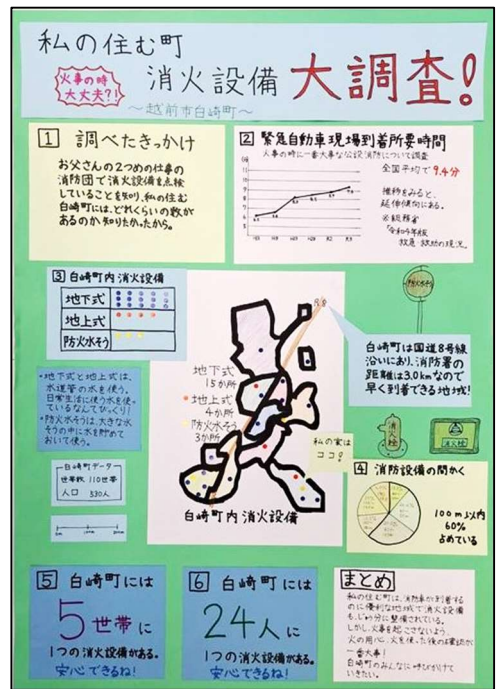 私の住む町
火事の時
大丈夫?!
消火設備 大調査!
～越前市白崎町～
1 調べたきっかけ
お父さんの2つめの仕事の
消防団で消火設備を点検
していることを知り、私の住む
白崎町には、どれくらいの数が
あるのか知りたかったから。
2 緊急自動車現場到着所要時間
火事の時に一番大事な公設消防について調査
全国平均で9.4分
推移をみると、
延伸傾向にある。
※総務省
「令和4年版
救急・救助の現況」
3 白崎町内消火設備
地下式
地上式
防火水そう
・地下式と地上式は、
水道管の水を使う。
日常生活に使う水を使っ
ているなんてびっくり!
・防火水そうは、大きな水
そうの中に水を貯めて
おいて使う。
白崎町データ
世帯数 110世帯
人口 530人
地下式
15か所
地上式
4か所
防火水そう
3か所
白崎町内消火設備
私の家は
ココ!
防火水そう
白崎町は国道8号線
沿いにあり、消防署の
距離は3.0kmなので
早く到着できる地域!
消火栓
消火栓
4 消防設備の間かく
100m以内
60%
占めている
5 白崎町には
5世帯に
1つの消火設備がある。
安心できるね!
6 白崎町には
24人に
1つの消火設備がある。
安心できるね!
まとめ
私の住む町は、消防車が到着する
のに便利な地域で消火設備
も、じゅう分に整備されている。
しかし、火事を起こさないよう、
火の用心、火を使った後の確認が
一番大事!
白崎町のみんなに呼びかけて
いきたい。